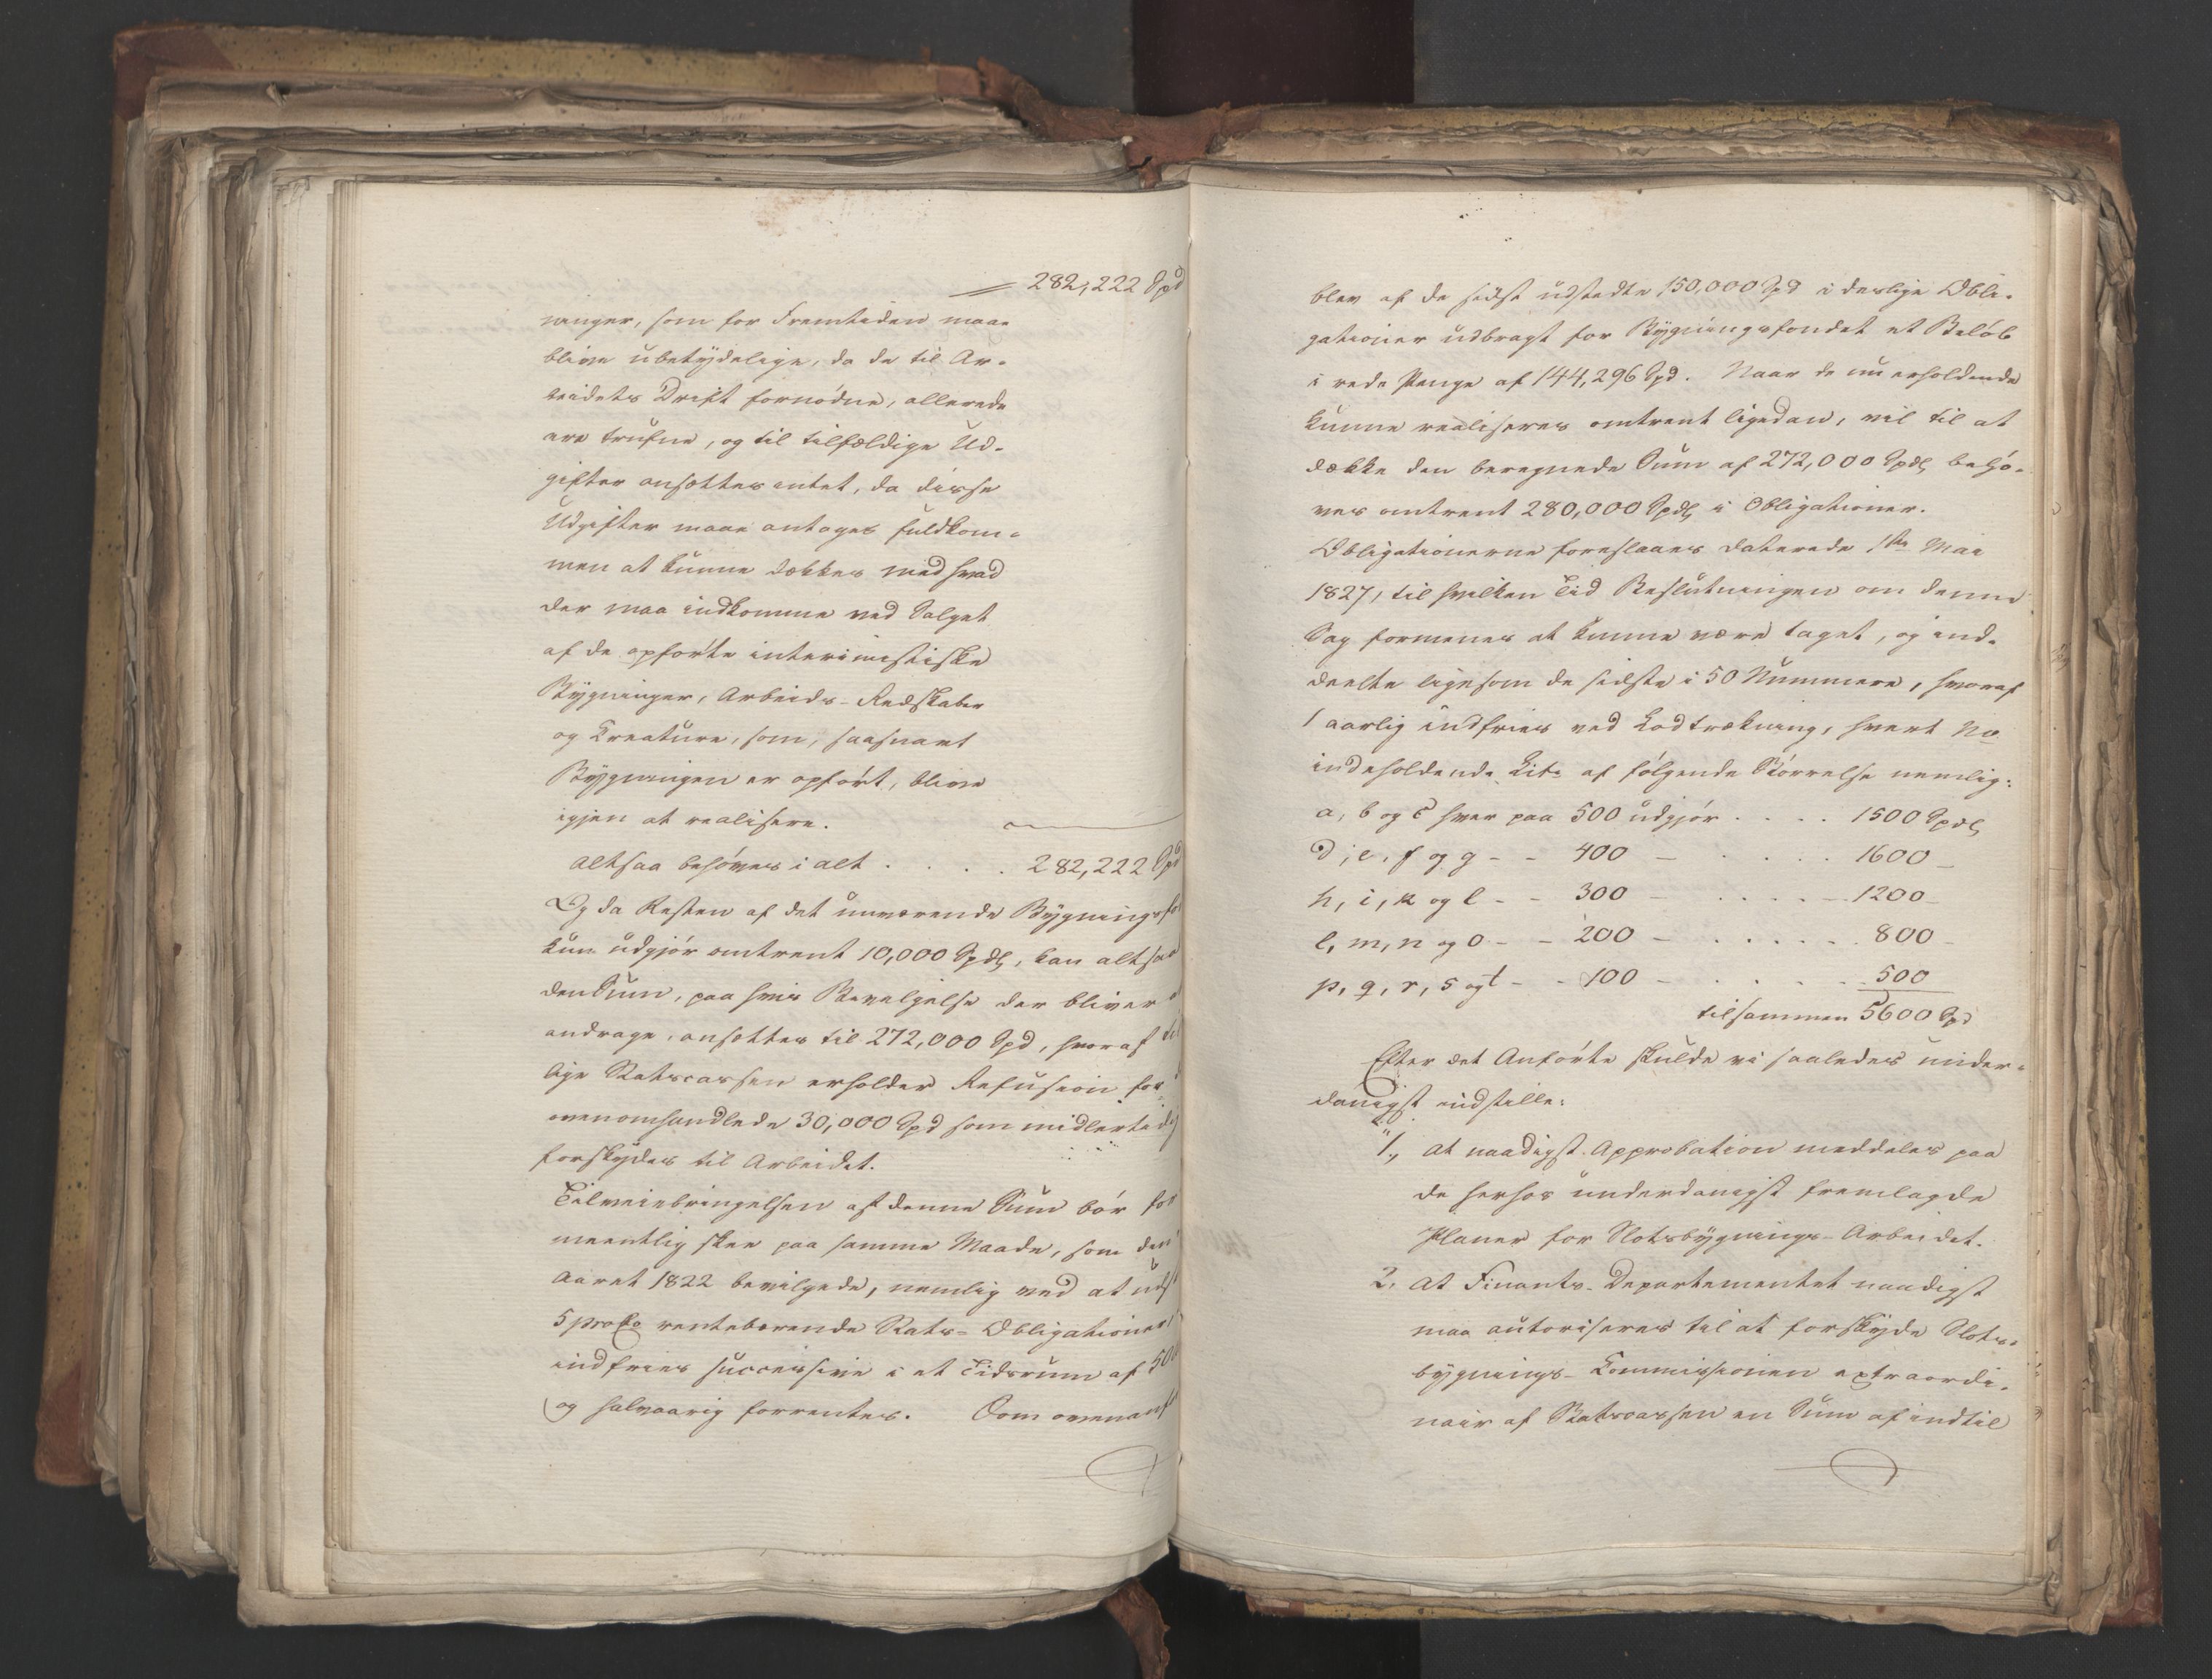 = 282,222 Spd
ninger, som for Fremtiden maae
blive ubetydelige, da de til Ar-
beidets Drift fornødne, allerede
ere trufne, og til tilfældige Ud-
gifter ansættes intet, da disse
Udgifter maae antages fuldkom-
men at kunne dækkes med hvad
der maa indkomme ved Salget
af de opførte interimistiske
Bygninger, Arbeids-Redskaber
og Creature, som, saasnart
Bygningen er opført, blive
igjen at realisere.
Altsaa behøves i alt . . . . 282,222 Spd
Og da Resten af det nuværende Bygningsfo
kun udgjør omtrent 10,000 Spdlr, kan altsaa
den Sum, paa hvis Bevilgelse der bliver a
andrage, ansættes til 272,000 Spd, hvoraf til
lige Statscassen erholder Refusion for
ovenomhandlede 30,000 Spd som midlertidig
forskydes til Arbeidet.
Tilveiebringelsen af denne Sum bør for
meentlig skee paa samme Maade, som den
Aaret 1822 bevilgede, nemlig ved at udst
5 procto rentebærende Stats-Obligationer,
indfries successive i et Tidsrum af 50
og halvaarig forrentes. Som ovenanf
blev af de sidst udstedte 150,000 Spd i deslige Obli-
gationer udbragt for Bygningsfondet et Beløb
i rede Penge af 144,296 Spd. Naar de nu erholdende
kunne realiseres omtrent ligedan, vil til at
dække den beregnede Sum af 272,000 Spdlr behø-
ves omtrent 280,000 Spdlr i Obligationer.
Obligationerne foreslaaes daterede 1ste Mai
1827, til hvilken Tid Beslutningen om denne
Sag formenes at kunne være taget, og ind-
deelte ligesom de sidste i 50 Nummere, hvoraf
1 aarlig indfries ved Lodtrækning, hvert No
indeholdende Litr. af følgende Størrelse nemlig:
a, b og c hver paa 500 udgjør . . . . 1500 Spdlr
d, e, f og g - - 400 - . . . . 1600 -
h, i, k og l - - 300 - . . . . 1200 -
l, m, n og o - - 200 - . . . . . 800 -
p, q, r, s og t - - 100 - . . . . 500
tilsammen 5600 Spd
Efter det Anførte skulde vi saaledes under-
danigst indstille:
"1, at naadigst Approbation meddeles paa
de herhos underdanigst fremlagde
Planer for Slotsbygnings-Arbeidet.
2, at Finants-Departementet naadigst
maa autoriseres til at forskyde Slots-
bygnings-Commissionen extraordi-
nair af Statscassen en Sum af indtil